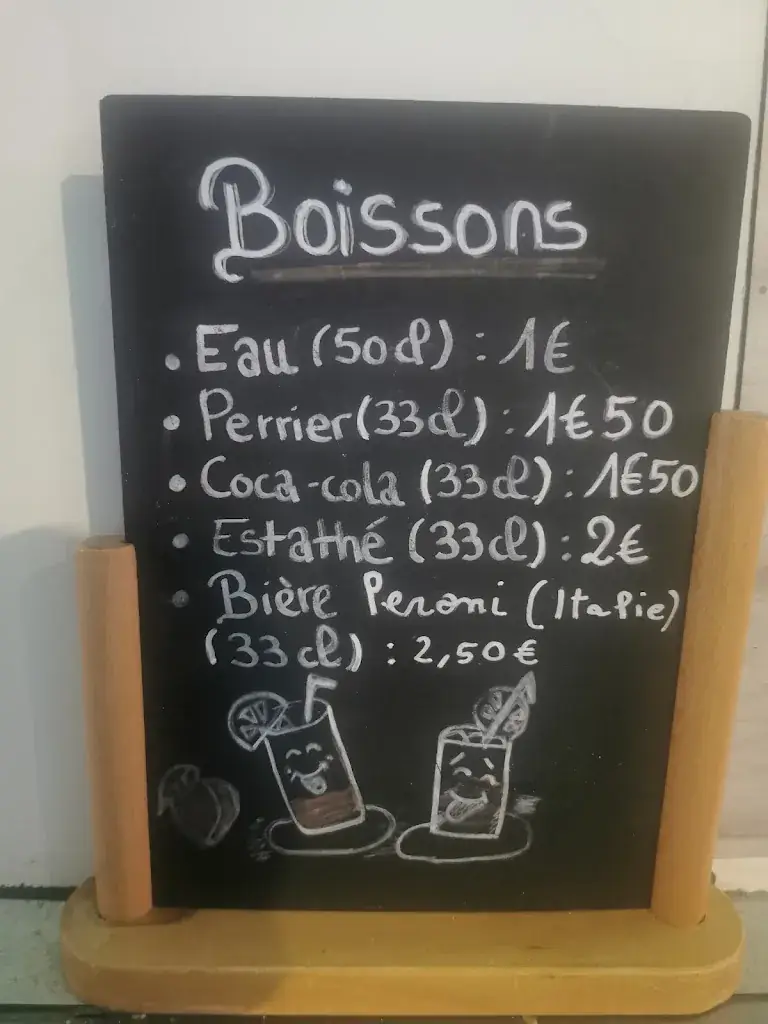 Boissons
• Eau (50cl) : 1€
• Perrier (33cl) : 1€50
• Coca-cola (33cl) : 1€50
• Estathé (33cl) : 2€
• Bière Peroni (Italie)
(33cl) : 2,50€